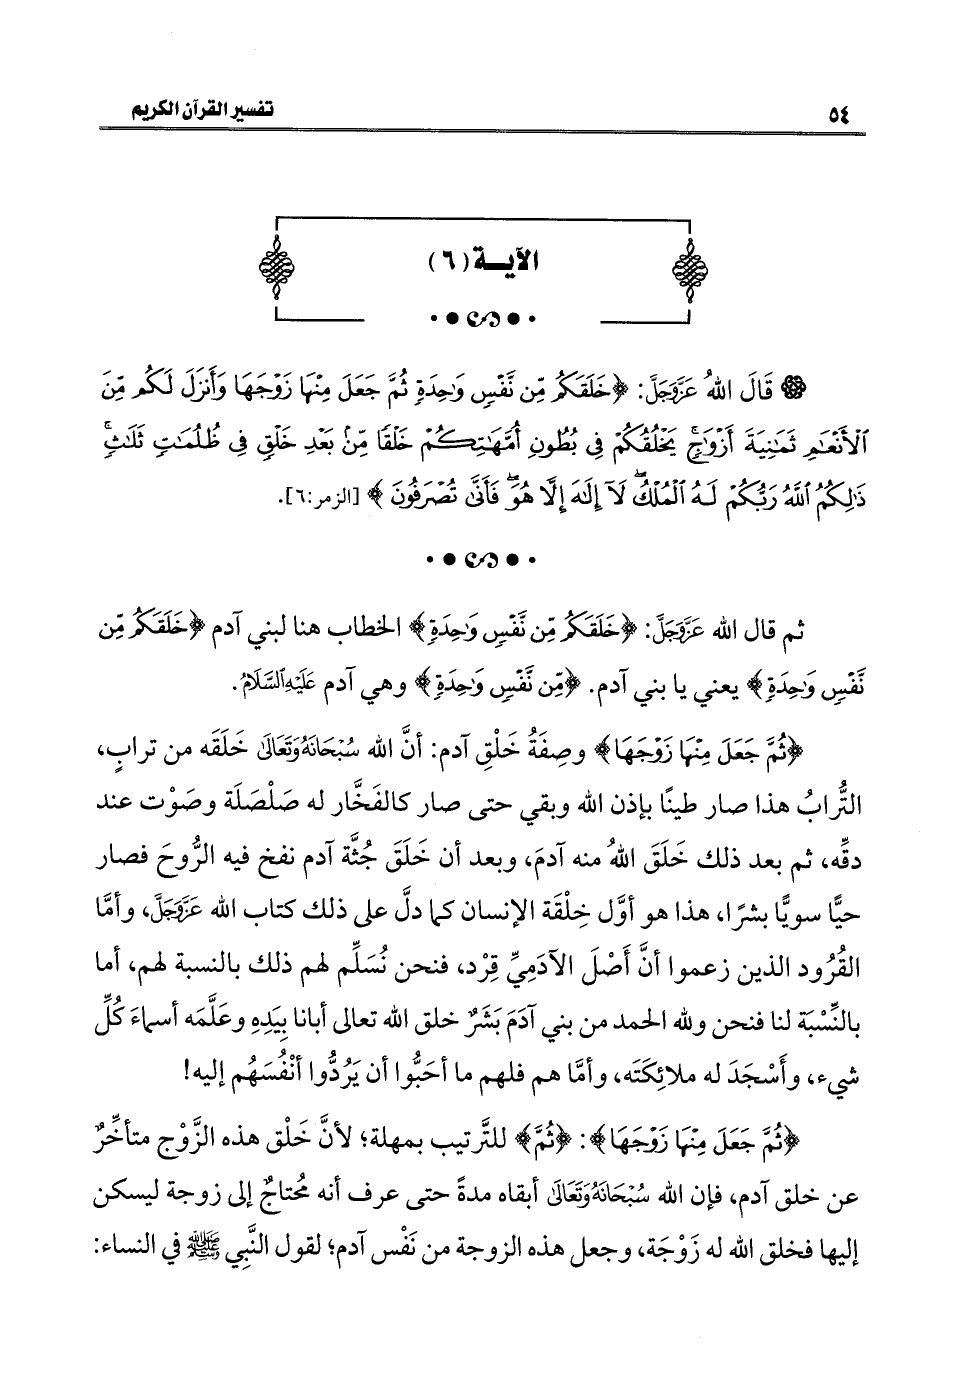 ٥٤ تفسير القرآن الكريم
الآيــة (٦)
قَالَ اللهُ عَزَّوَجَلَّ: ﴿خَلَقَكُم مِّن نَّفْسٍ وَٰحِدَةٍ ثُمَّ جَعَلَ مِنْهَا زَوْجَهَا وَأَنزَلَ لَكُم مِّنَ
ٱلْأَنْعَٰمِ ثَمَٰنِيَةَ أَزْوَٰجٍ ۚ يَخْلُقُكُمْ فِى بُطُونِ أُمَّهَٰتِكُمْ خَلْقًا مِّنۢ بَعْدِ خَلْقٍ فِى ظُلُمَٰتٍ ثَلَٰثٍ ۚ
ذَٰلِكُمُ ٱللَّهُ رَبُّكُمْ لَهُ ٱلْمُلْكُ ۖ لَآ إِلَٰهَ إِلَّا هُوَ ۖ فَأَنَّىٰ تُصْرَفُونَ﴾ [الزمر:٦].
ثم قال الله عَزَّوَجَلَّ: ﴿خَلَقَكُم مِّن نَّفْسٍ وَٰحِدَةٍ﴾ الخطاب هنا لبني آدم ﴿خَلَقَكُم مِّن
نَّفْسٍ وَٰحِدَةٍ﴾ يعني يا بني آدم. ﴿مِّن نَّفْسٍ وَٰحِدَةٍ﴾ وهي آدم عَلَيْهِ ٱلسَّلَامُ.
﴿ثُمَّ جَعَلَ مِنْهَا زَوْجَهَا﴾ وصِفَةُ خَلْقِ آدم: أنَّ الله سُبْحَانَهُ وَتَعَالَىٰ خَلَقَه من ترابٍ،
التُّرابُ هذا صار طينًا بإذن الله وبقي حتى صار كالفَخَّار له صَلْصَلَة وصَوْت عند
دقِّه، ثم بعد ذلك خَلَقَ اللهُ منه آدمَ، وبعد أن خَلَقَ جُثَّة آدم نفخ فيه الرُّوحَ فصار
حيًّا سويًّا بشرًا، هذا هو أوَّل خِلْقَة الإنسان كما دلَّ على ذلك كتاب الله عَزَّوَجَلَّ، وأمَّا
القُرُود الذين زعموا أنَّ أَصْلَ الآدَمِيِّ قِرْد، فنحن نُسَلِّم لهم ذلك بالنسبة لهم، أما
بالنِّسْبَة لنا فنحن ولله الحمد من بني آدَمَ بَشَرٌ خلق الله تعالى أبانا بِيَدِهِ وعَلَّمَه أسماءَ كُلِّ
شيء، وأَسْجَدَ له ملائِكَتَه، وأمَّا هم فلهم ما أحَبُّوا أن يَرُدُّوا أنْفُسَهُم إليه!
﴿ثُمَّ جَعَلَ مِنْهَا زَوْجَهَا﴾: ﴿ثُمَّ﴾ للتَّرتيب بمهلة؛ لأنَّ خَلْق هذه الزَّوْج متأخِّرٌ
عن خلق آدم، فإن الله سُبْحَانَهُ وَتَعَالَىٰ أبقاه مدةً حتى عرف أنه مُحتاجٌ إلى زوجة ليسكن
إليها فخلق الله له زَوْجَة، وجعل هذه الزوجة من نَفْس آدم؛ لقول النَّبِي ﷺ في النساء: